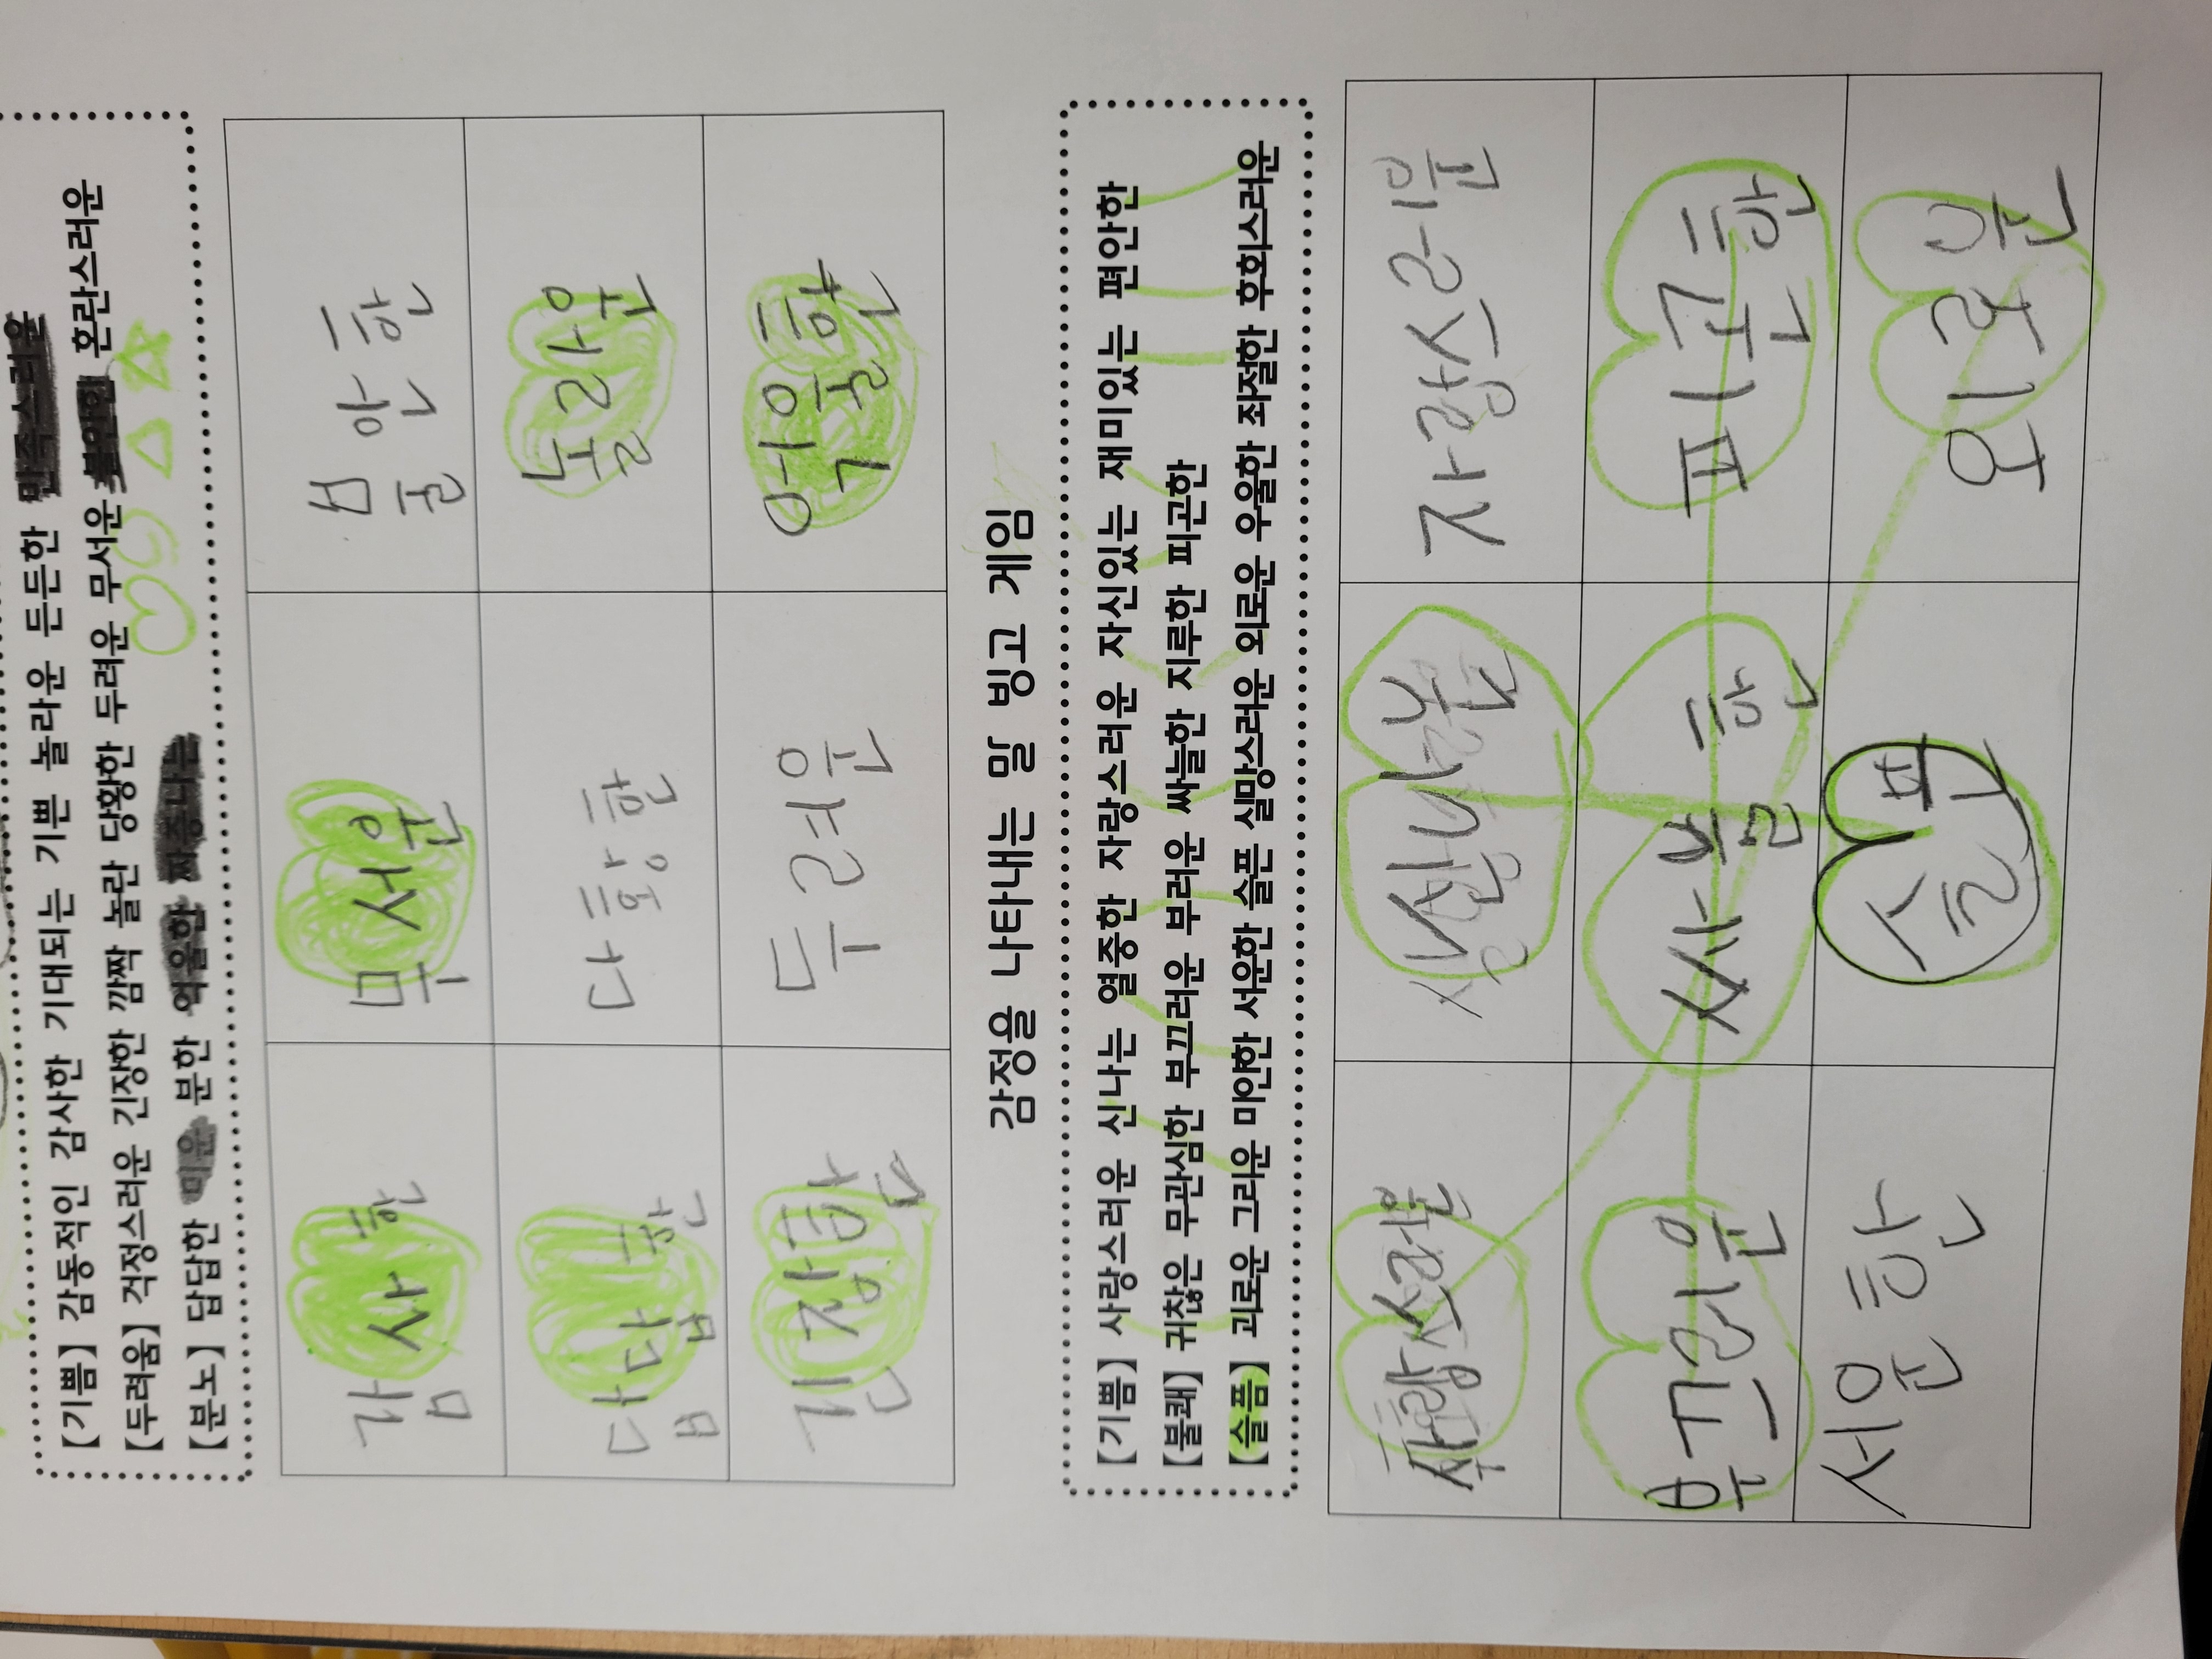 【기쁨】 감동적인 감사한 기대되는 기쁜 놀라운 든든한 만족스러운
【두려움】 걱정스러운 긴장한 깜짝 놀란 당황한 두려운 무서운 불안한 혼란스러운
【분노】 답답한 미운 분한 억울한 짜증나는
감사한 무서운 불안한
답답한 다황한 놀라운
긴장함 두려운 억울한
감정을 나타내는 말 빙고 게임
【기쁨】 사랑스러운 신나는 열중한 자랑스러운 자신있는 재미있는 편안한
【불쾌】 귀찮은 무관심한 부끄러운 부러운 싸늘한 지루한 피곤한
【슬픔】 괴로운 그리운 미안한 서운한 슬픈 실망스러운 외로운 우울한 좌절한 후회스러운
자랑스러운
부끄러운 싸늘한 피곤한
서운한 슬픈 외로운